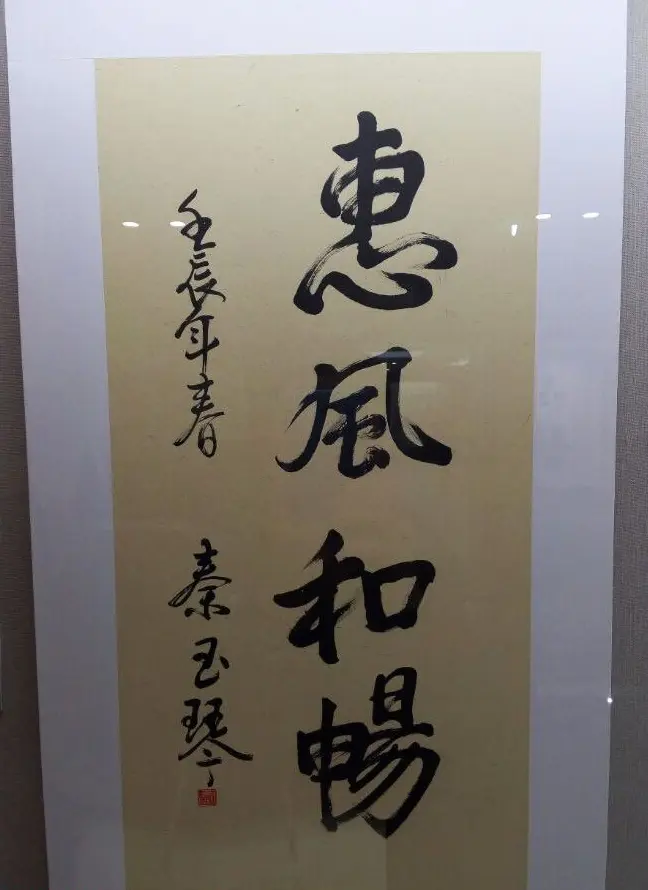 惠風和暢
壬辰年春 秦玉琴